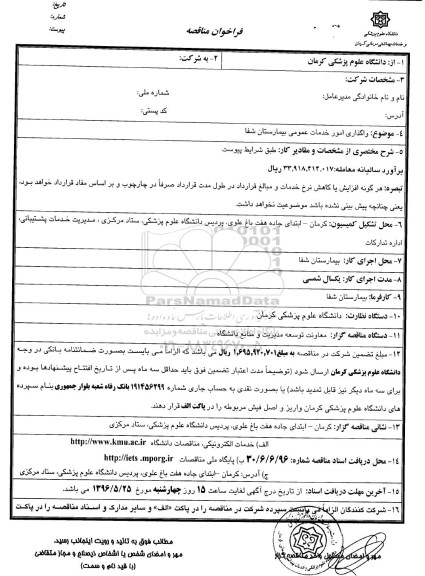 تاریخ:
شماره:
پیوست:
فراخوان مناقصه
دانشگاه علوم پزشکی
و خدمات بهداشتی درمانی کرمان
۱- از: دانشگاه علوم پزشکی کرمان
۲- به شرکت:
۳- مشخصات شرکت:
نام و نام خانوادگی مدیرعامل:
شماره ملی:
آدرس:
کد پستی:
۴- موضوع: واگذاری امور خدمات عمومی بیمارستان شفا
۵- شرح مختصری از مشخصات و مقادیر کار: طبق شرایط پیوست
برآورد سالیانه معامله: ۳۳,۹۱۸,۴۱۴,۰۱۷ ریال
تبصره: هر گونه افزایش یا کاهش نرخ خدمات و مبالغ قرارداد در طول مدت قرارداد صرفاً در چارچوب و بر اساس مفاد قرارداد خواهد بود.
یعنی چنانچه پیش بینی نشده باشد موضوعیت نخواهد داشت.
۶- محل تشکیل کمیسیون: کرمان – ابتدای جاده هفت باغ علوی، پردیس دانشگاه علوم پزشکی، ستاد مرکزی، مدیریت خدمات پشتیبانی،
اداره تدارکات
۷- محل اجرای کار: بیمارستان شفا
۸- مدت اجرای کار: یکسال شمسی
۹- کارفرما: بیمارستان شفا
ParsNamadData
۱۰- دستگاه نظارت: دانشگاه علوم پزشکی کرمان
۱۱- دستگاه مناقصه گزار: معاونت توسعه مدیریت و منابع دانشگاه
۱۲- مبلغ تضمین شرکت در مناقصه به مبلغ ۱,۶۹۵,۹۲۰,۷۰۱ ریال می باشد که الزاماً می بایست بصورت ضمانتنامه بانکی در وجه
دانشگاه علوم پزشکی کرمان ارسال شود (توضیحاً مدت اعتبار تضمین فوق باید حداقل سه ماه پس از تاریخ افتتاح پیشنهادها بوده و
برای سه ماه دیگر نیز قابل تمدید باشد) یا بصورت نقدی به حساب جاری شماره ۱۹۱۴۵۶۲۹۹ بانک رفاه شعبه بلوار جمهوری بنام سپرده
های دانشگاه علوم پزشکی کرمان واریز و اصل فیش مربوطه را در پاکت الف قرار دهند.
۱۳- نشانی مناقصه گزار: کرمان – ابتدای جاده هفت باغ علوی، پردیس دانشگاه علوم پزشکی، ستاد مرکزی
۱۴- محل دریافت اسناد مناقصه شماره: ۳۰/۶/۶/۹۶
الف) خدمات الکترونیکی، مناقصات دانشگاه http://www.kmu.ac.ir
ب) پایگاه ملی مناقصات http://iets.mporg.ir
ج) آدرس: کرمان –ابتدای جاده هفت باغ علوی، پردیس دانشگاه علوم پزشکی، ستاد مرکزی
۱۵- آخرین مهلت دریافت اسناد: از تاریخ درج آگهی لغایت ساعت ۱۵ روز چهارشنبه مورخ ۱۳۹۶/۵/۲۵ می باشد.
۱۶- شرکت کنندگان الزاماً می بایست سپرده شرکت در مناقصه را در پاکت «الف» و سایر مدارک و اسناد مناقصه را در پاکت
مطالب فوق به تائید و رویت اینجانب رسید.
مهر و امضای شخص یا اشخاص ذیصلاح و مجاز متقاضی
(با قید نام و سمت)
مهر و امضای
مناقصه گزار